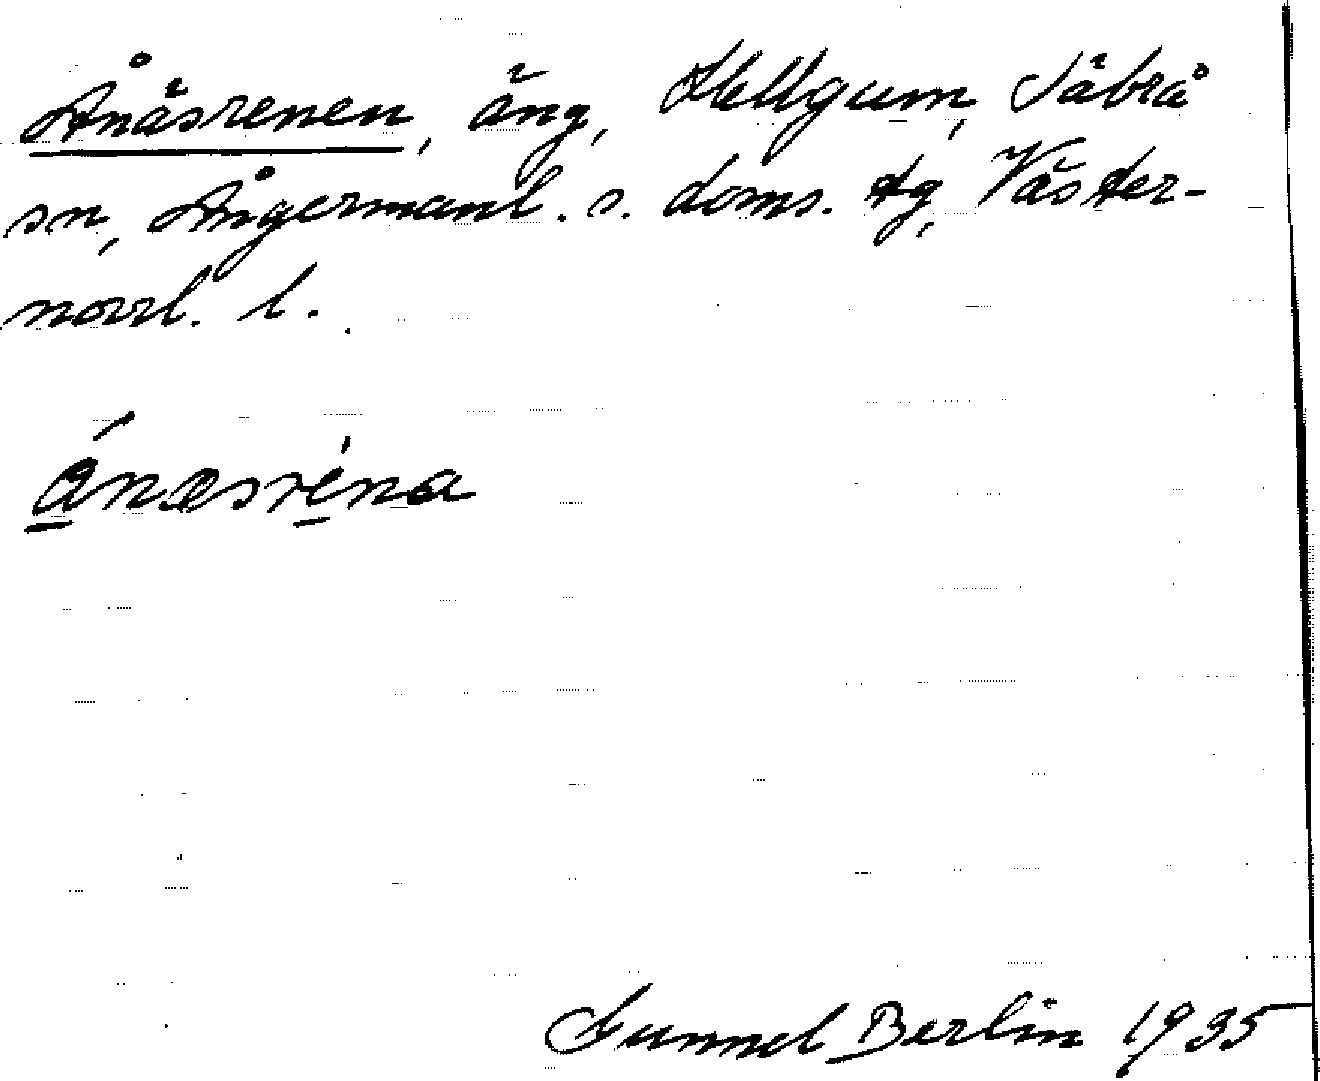 Ånäsrenen, äng, Hellgum, Säbrå
sn, Ångermanl. s. doms. tg, Väster-
norrl. l.
ánæsréna
Gunnel Berlin 1935